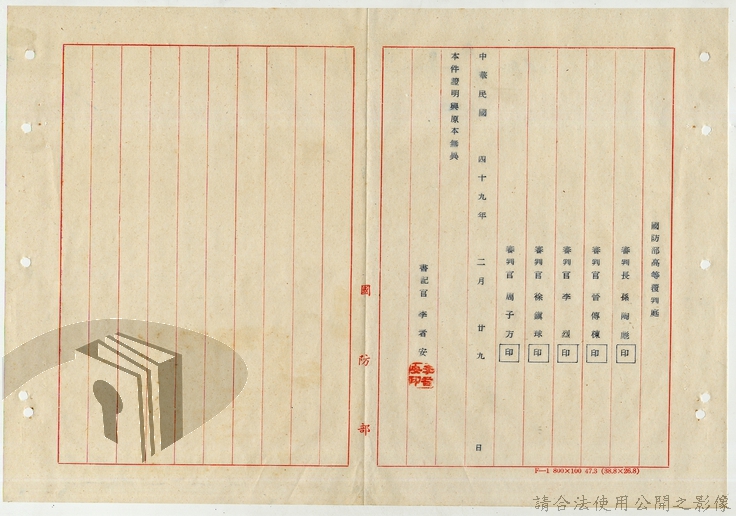 國防部高等覆判庭
審判長 孫 印
審判官 曾傳棟 印
審判官 李烈 印
審判官 徐鎮球 印
審判官 周子方 印
中華民國 四十九年 二月 廿九 日
本件證明與原本無異
書記官 李君安
國防部
F—1 800×100 47.3 (38.8×26.8)
請合法使用公開之影像